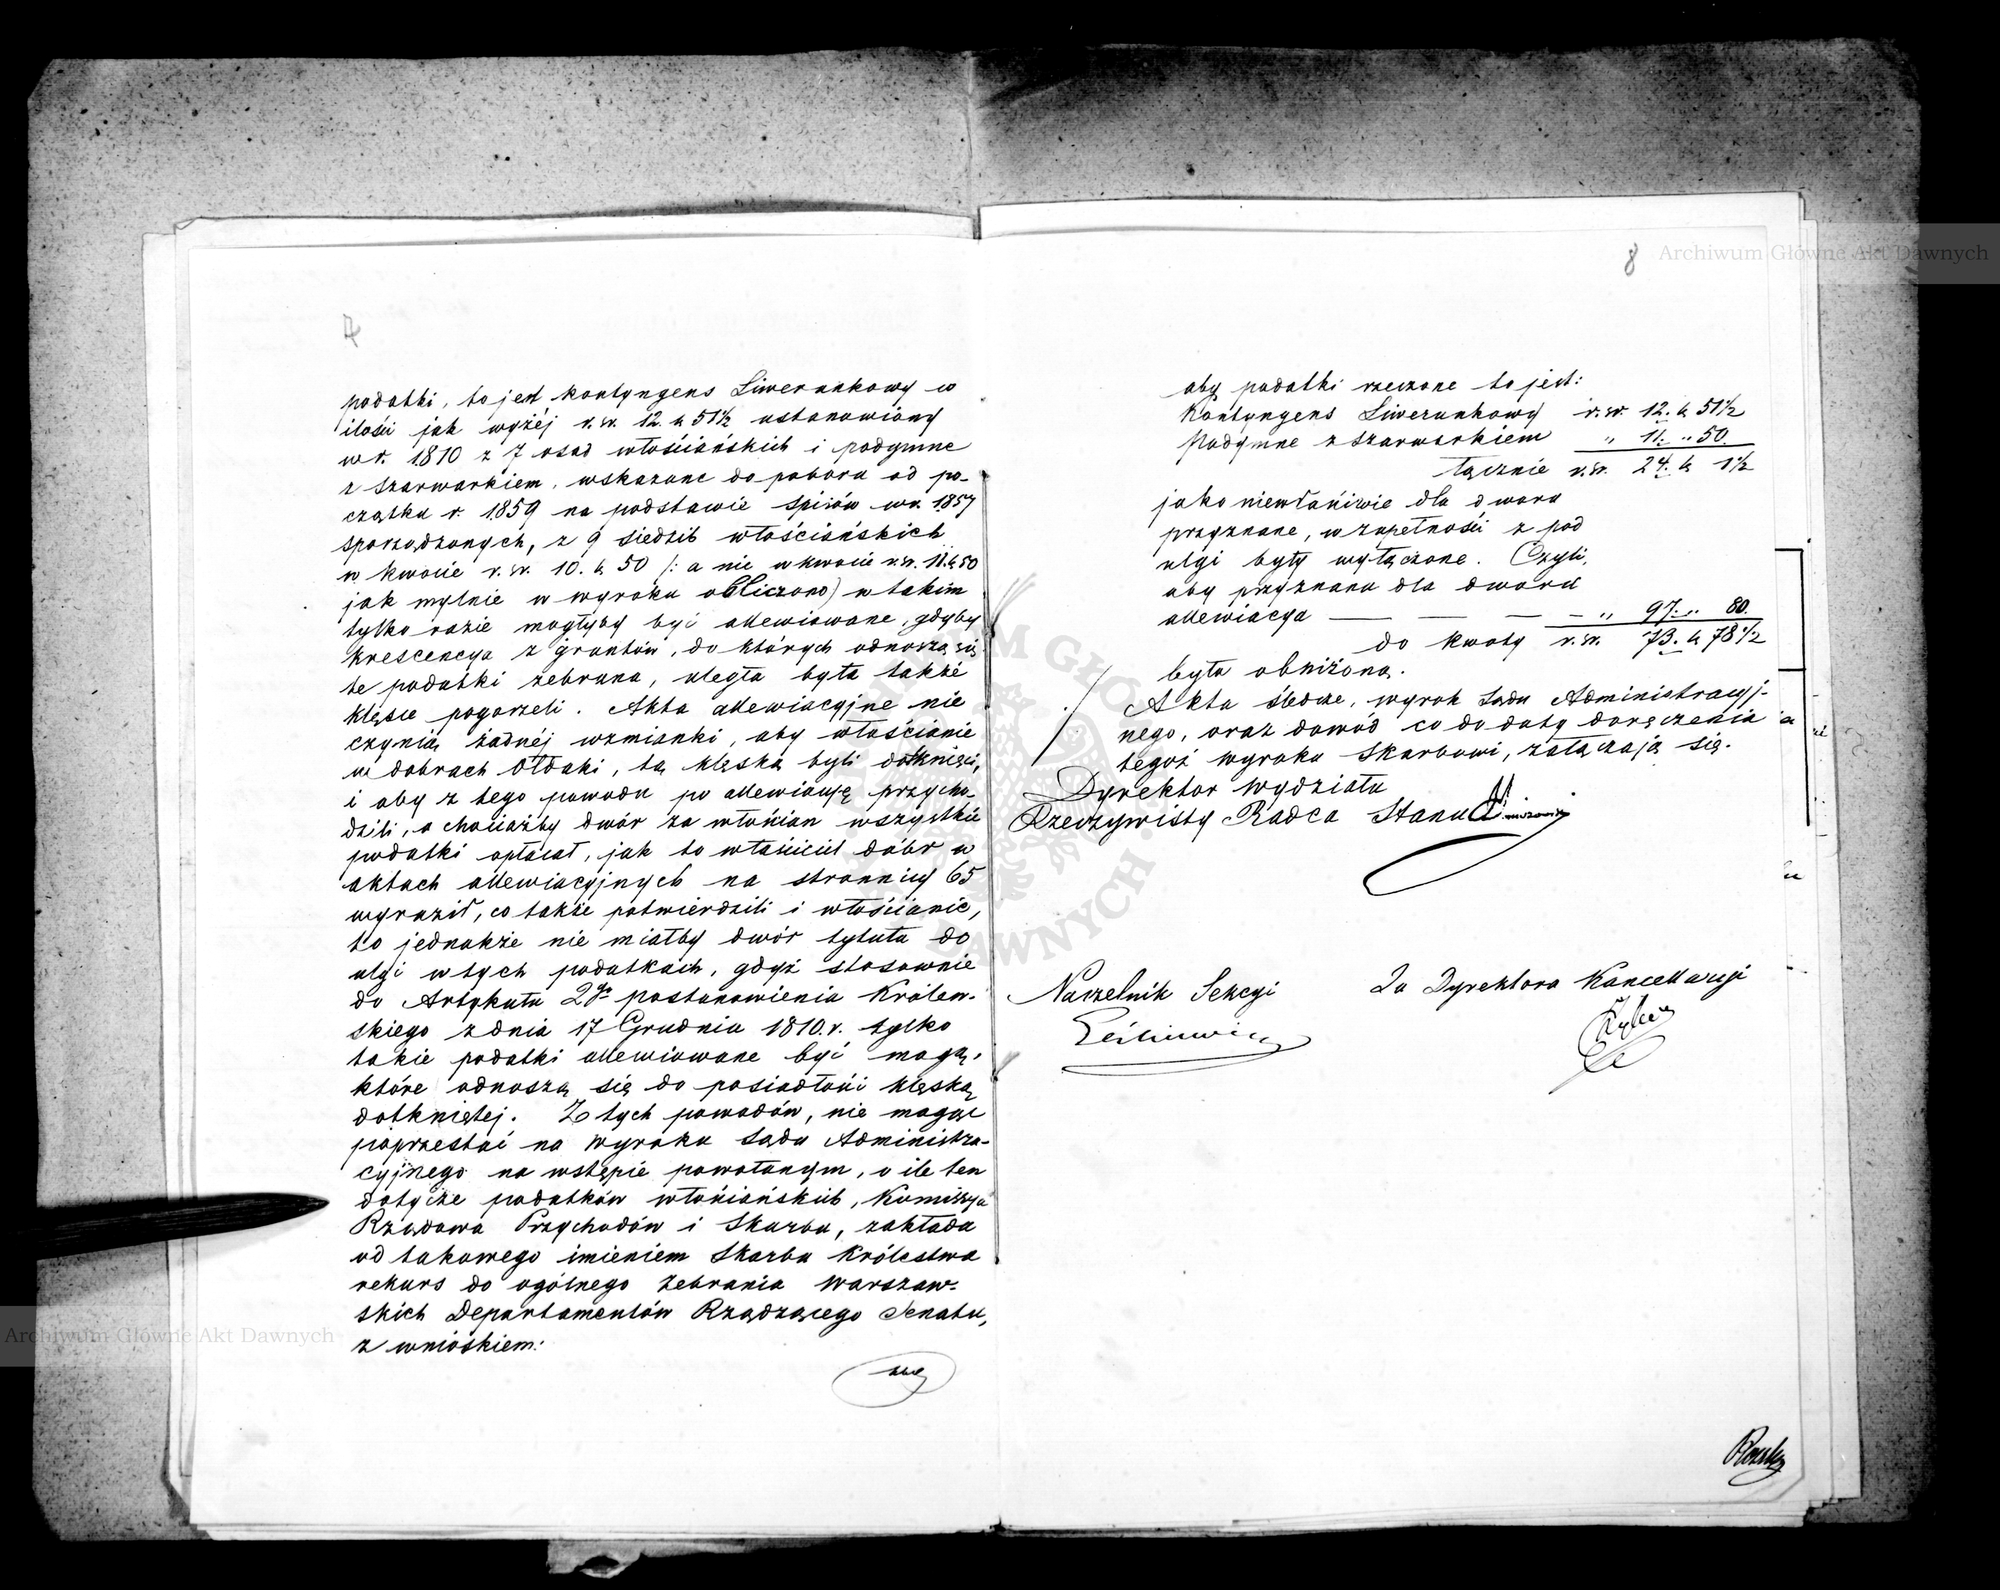 podatki, to jest kontyngens Liwerunkowy w
ilości jak wyżéj r. sr. 12. k 51½ ustanowiony
w r. 1810 z 7 osad włościańskich i podymne
z szarwarkiem, wskazane do poboru od po-
czątku r. 1859 na podstawie spisów w r. 1857
sporządzonych, z 9 siedzib włościańskich
w kwocie r. sr. 10. k 50 /: a nie w kwocie r. sr. 11. k 50
jak mylnie w wyroku obliczono) w takim
tylko razie mogłyby być allewiowane, gdyby
krescencya z gruntów, do których odnoszą się
te podatki zebrana, uległa była także
klęsce pogorzeli. Akta allewiacyjne nie
czynią żadnéj wzmianki, aby włościanie
w dobrach Ołdaki, tą klęską byli dotknięci,
i aby z tego powodu po allewiacyę przycho-
dzili, a chociażby dwór za włościan wszystkie
podatki opłacał, jak to właściciel dóbr w
aktach allewiacyjnych na stronnicy 65
wyraził, co także potwierdzili i włościanie,
to jednakże nie miałby dwór tytułu do
ulgi w tych podatkach, gdyż stosownie
do Artykułu 2go postanowienia Królew-
skiego z dnia 17 Grudnia 1810. r. tylko
takie podatki allewiowane być mogą,
które odnoszą się do posiadłości klęską
dotkniętej. Z tych powodów, nie mogąc
poprzestać na wyroku Sądu Administra-
cyjnego na wstępie powołanym, o ile ten
dotycze podatków włościańskich, Kommissya
Rządowa Przychodów i Skarbu, zakłada
od takowego imieniem Skarbu Królestwa
rekurs do ogólnego Zebrania Warszaw-
skich Departamentów Rządzącego Senatu,
z wnioskiem:
aby
8
aby podatki rzeczone to jest:
Kontyngens Liwerunkowy r. sr. 12. k 51½
Podymne z szarwarkiem " 11. " 50.
łącznie r. sr. 24. k 1½
jako niewłaściwie dla dworu
przyznane, w zupełności z pod
ulgi były wyłączone. Czyli,
aby przyznana dla dworu
allewiacya — — — — " 97. " 80.
do kwoty r. sr. 73. k 78½
była obniżoną.
Akta śledcze, wyrok Sądu Administracyj-
nego, oraz dowód co do daty doręczenia
tegoż wyroku Skarbowi, załączają się.
Dyrektor Wydziału
Rzeczywisty Radca Stanu
Naczelnik Sekcyi
Za Dyrektora Kancellaryi
Archiwum Główne Akt Dawnych
Archiwum Główne Akt Dawnych